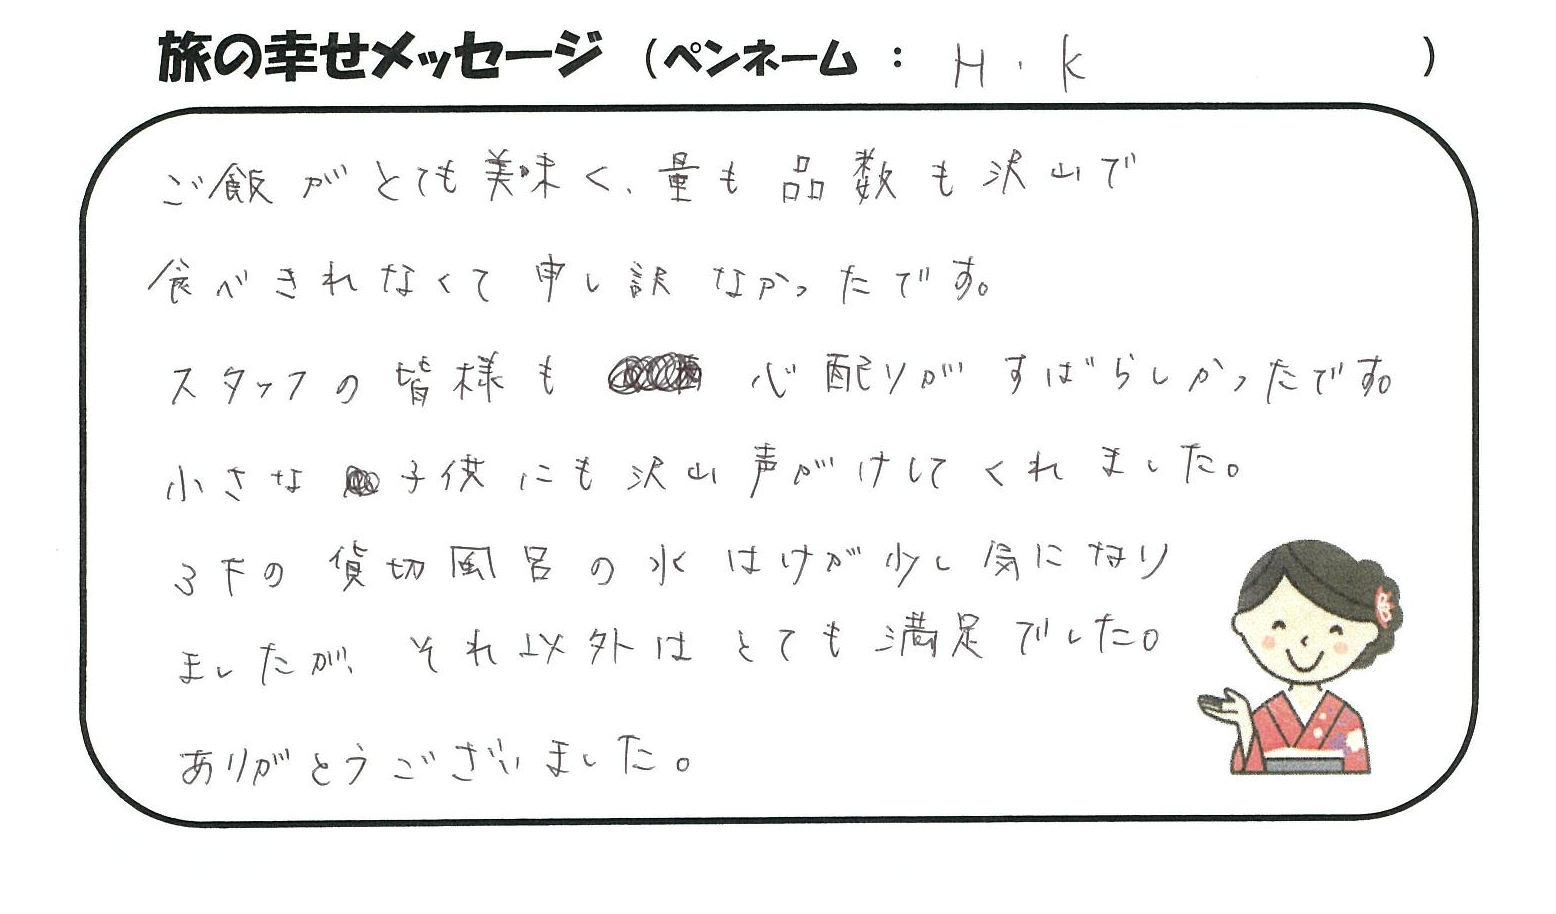 旅の幸せメッセージ（ペンネーム：H.K）
ご飯がとても美味く、量も品数も沢山で
食べきれなくて申し訳なかったです。
スタッフの皆様も心配りがすばらしかったです。
小さな子供にも沢山声がけしてくれました。
3Fの貸切風呂の水はけが少し気になり
ましたが、それ以外はとても満足でした。
ありがとうございました。